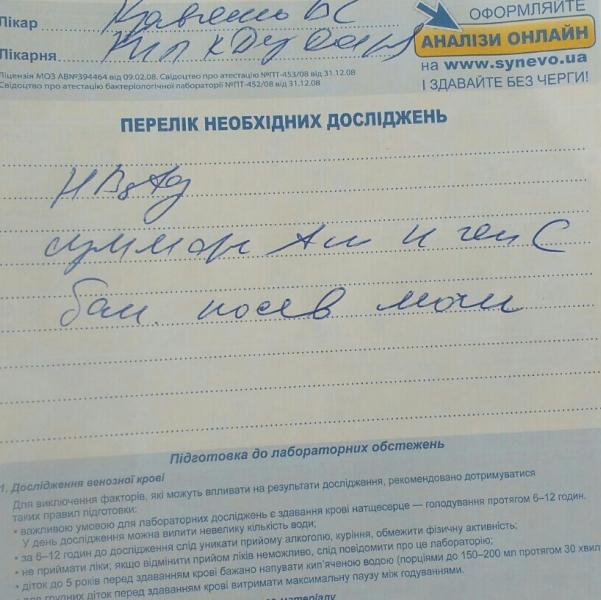 Лікар
ОФОРМЛЯЙТЕ
Лікарня
АНАЛІЗИ ОНЛАЙН
на www.synevo.ua
І ЗДАВАЙТЕ БЕЗ ЧЕРГИ!
Ліцензія МОЗ АВ№394464 від 09.02.08. Свідоцтво про атестацію №ПТ-453/08 від 31.12.08
Свідоцтво про атестацію бактеріологічної лабораторії №ПТ-452/08 від 31.12.08
ПЕРЕЛІК НЕОБХІДНИХ ДОСЛІДЖЕНЬ
HBsAg
суммарн Ат к геп С
бак. посев мочи
Підготовка до лабораторних обстежень
1. Дослідження венозної крові
Для виключення факторів, які можуть впливати на результати дослідження, рекомендовано дотримуватися
таких правил підготовки:
• важливою умовою для лабораторних досліджень є здавання крові натщесерце — голодування протягом 6–12 годин.
У день дослідження можна випити невелику кількість води;
• за 6–12 годин до дослідження слід уникати прийому алкоголю, куріння, обмежити фізичну активність;
• не приймати ліки; якщо відмінити прийом ліків неможливо, слід повідомити про це лабораторію;
• діток до 5 років перед здаванням крові бажано напувати кип'яченою водою (порціями до 150–200 мл протягом 30 хвил
• для грудних діток перед здаванням крові витримати максимальну паузу між годуваннями.